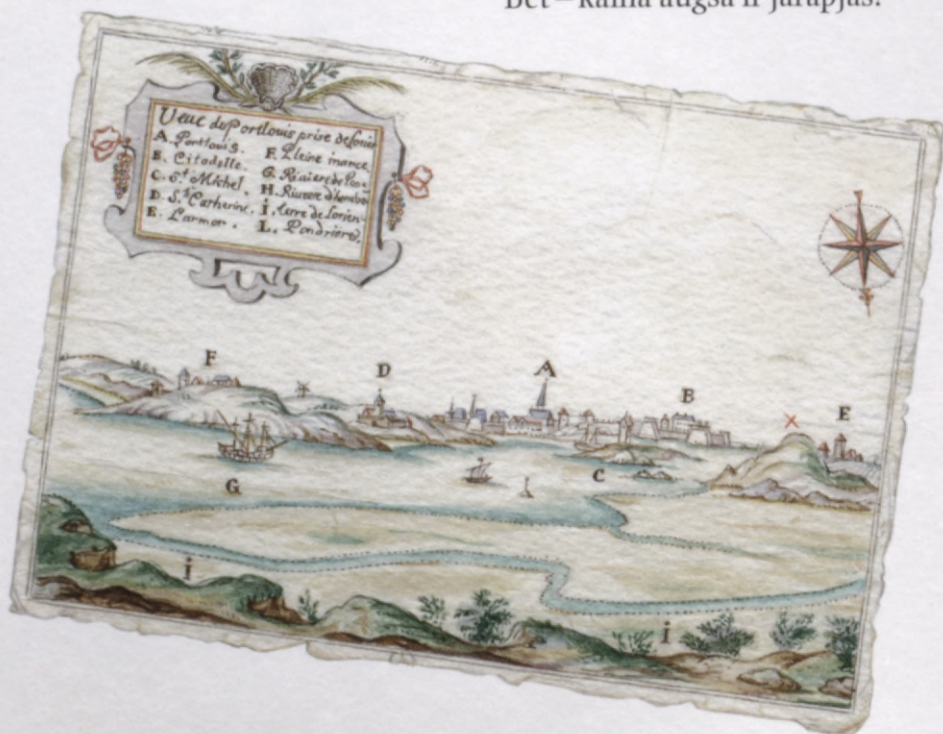 Bet – kalna augšā ir jārāpjas!
Veuë du Portlouis prise de
A. Portlouis.
B. Citadelle.
C. St. Michel.
D. Ste. Catherine.
E. Larmor.
F. Pleine
G. Riviere de
H. Riviere
i. terre de Lorien
L. Pondriere.
F
D
A
B
E
C
G
i
i